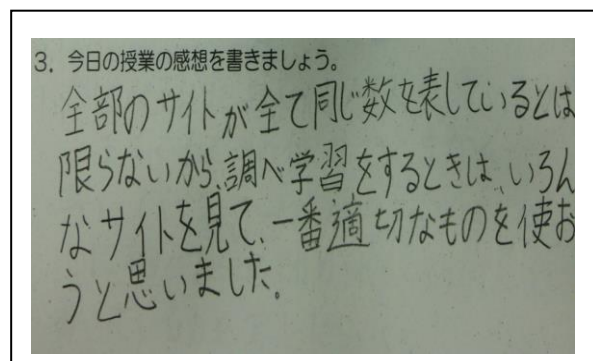 3. 今日の授業の感想を書きましょう。
全部のサイトが全て同じ数を表しているとは
限らないから、調べ学習をするときは、いろん
なサイトを見て、一番適切なものを使お
うと思いました。